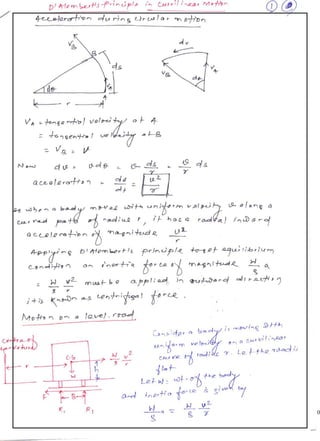 D'Alembert's Principle in Curvilinear Motion
Acceleration during circular motion
VB
B
ds
VA
A
dθ
r
dv
VB
VA
dθ
VA = tangential velocity at A
= tangential velocity at B
= VB = v
Now dv = v dθ = v ds/r = v/r ds
acceleration = dv/dt = v²/r
so when a body moves with uniform velocity v along a
curved path of radius r, it has a radial inward
acceleration of magnitude v²/r
Applying D'Alembert's principle to get equilibrium
condition an inertia force of magnitude W/g a
= W/g v²/r must be applied in outward direction
it is known as centrifugal force.
Motion on a level road
Consider a body is moving with
uniform velocity on a curvilinear
curve of radius r. Let the road is
flat
Let W = wt. of the body
and inertia force is given by
W/g a = W/g v²/r
Centre of
CG
W/g v²/r
r
W
h
F
B
R1